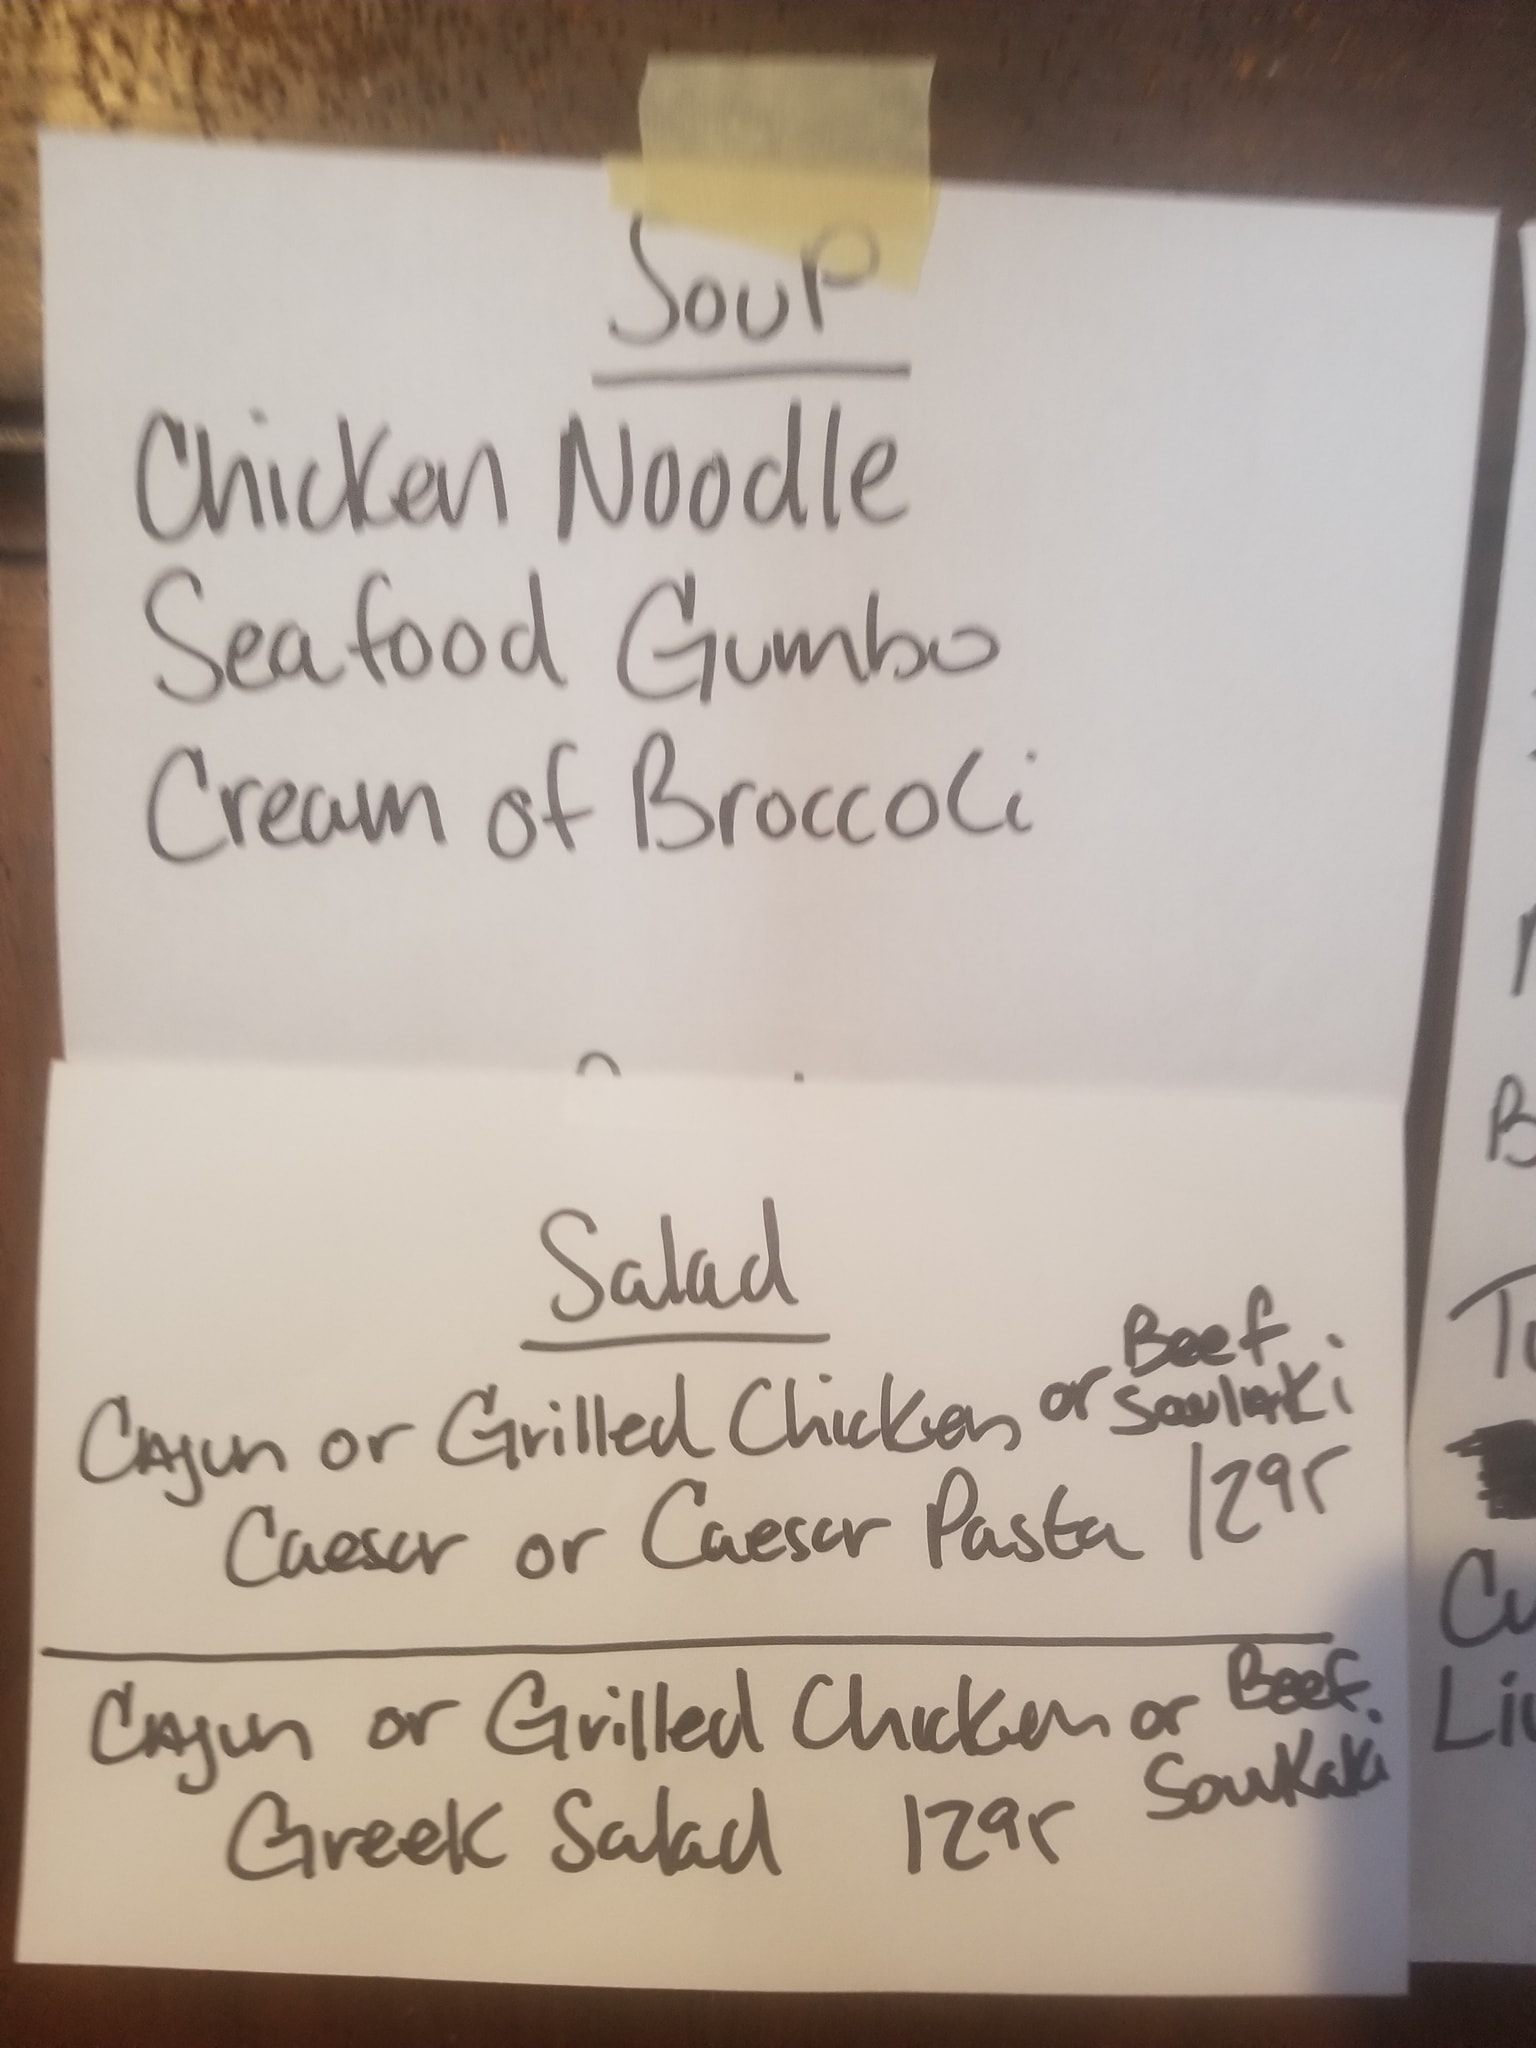 Soup
Chicken Noodle
Seafood Gumbo
Cream of Broccoli
Salad
Cajun or Grilled Chicken or Beef Souvlaki
Caesar or Caesar Pasta 1295
Cajun or Grilled Chicken or Beef
Greek Salad 1295